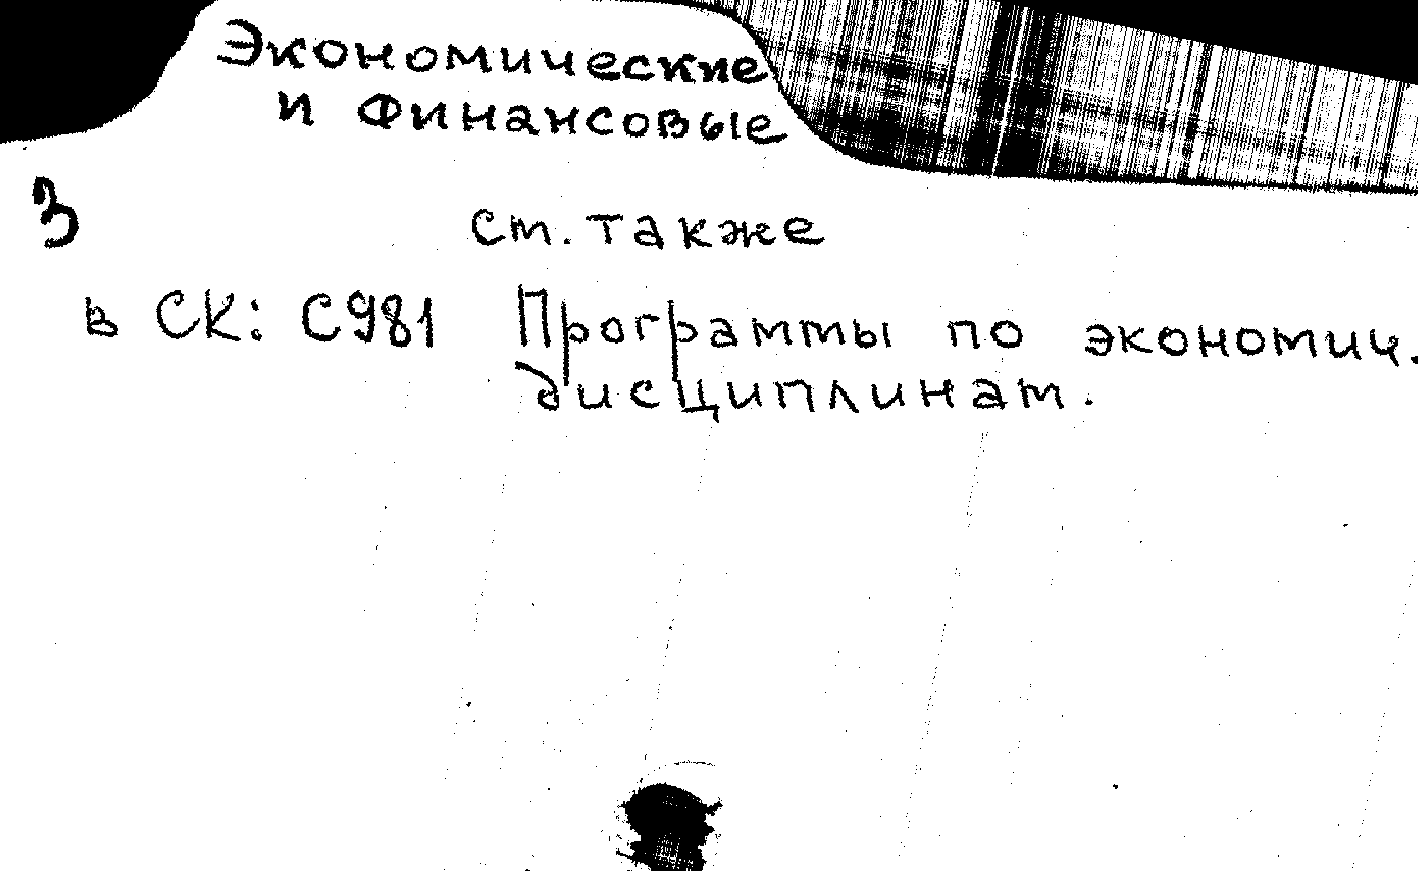 Экономические
и финансовые
3
ст. также
в СК: С981 Программы по экономич.
дисциплинам.